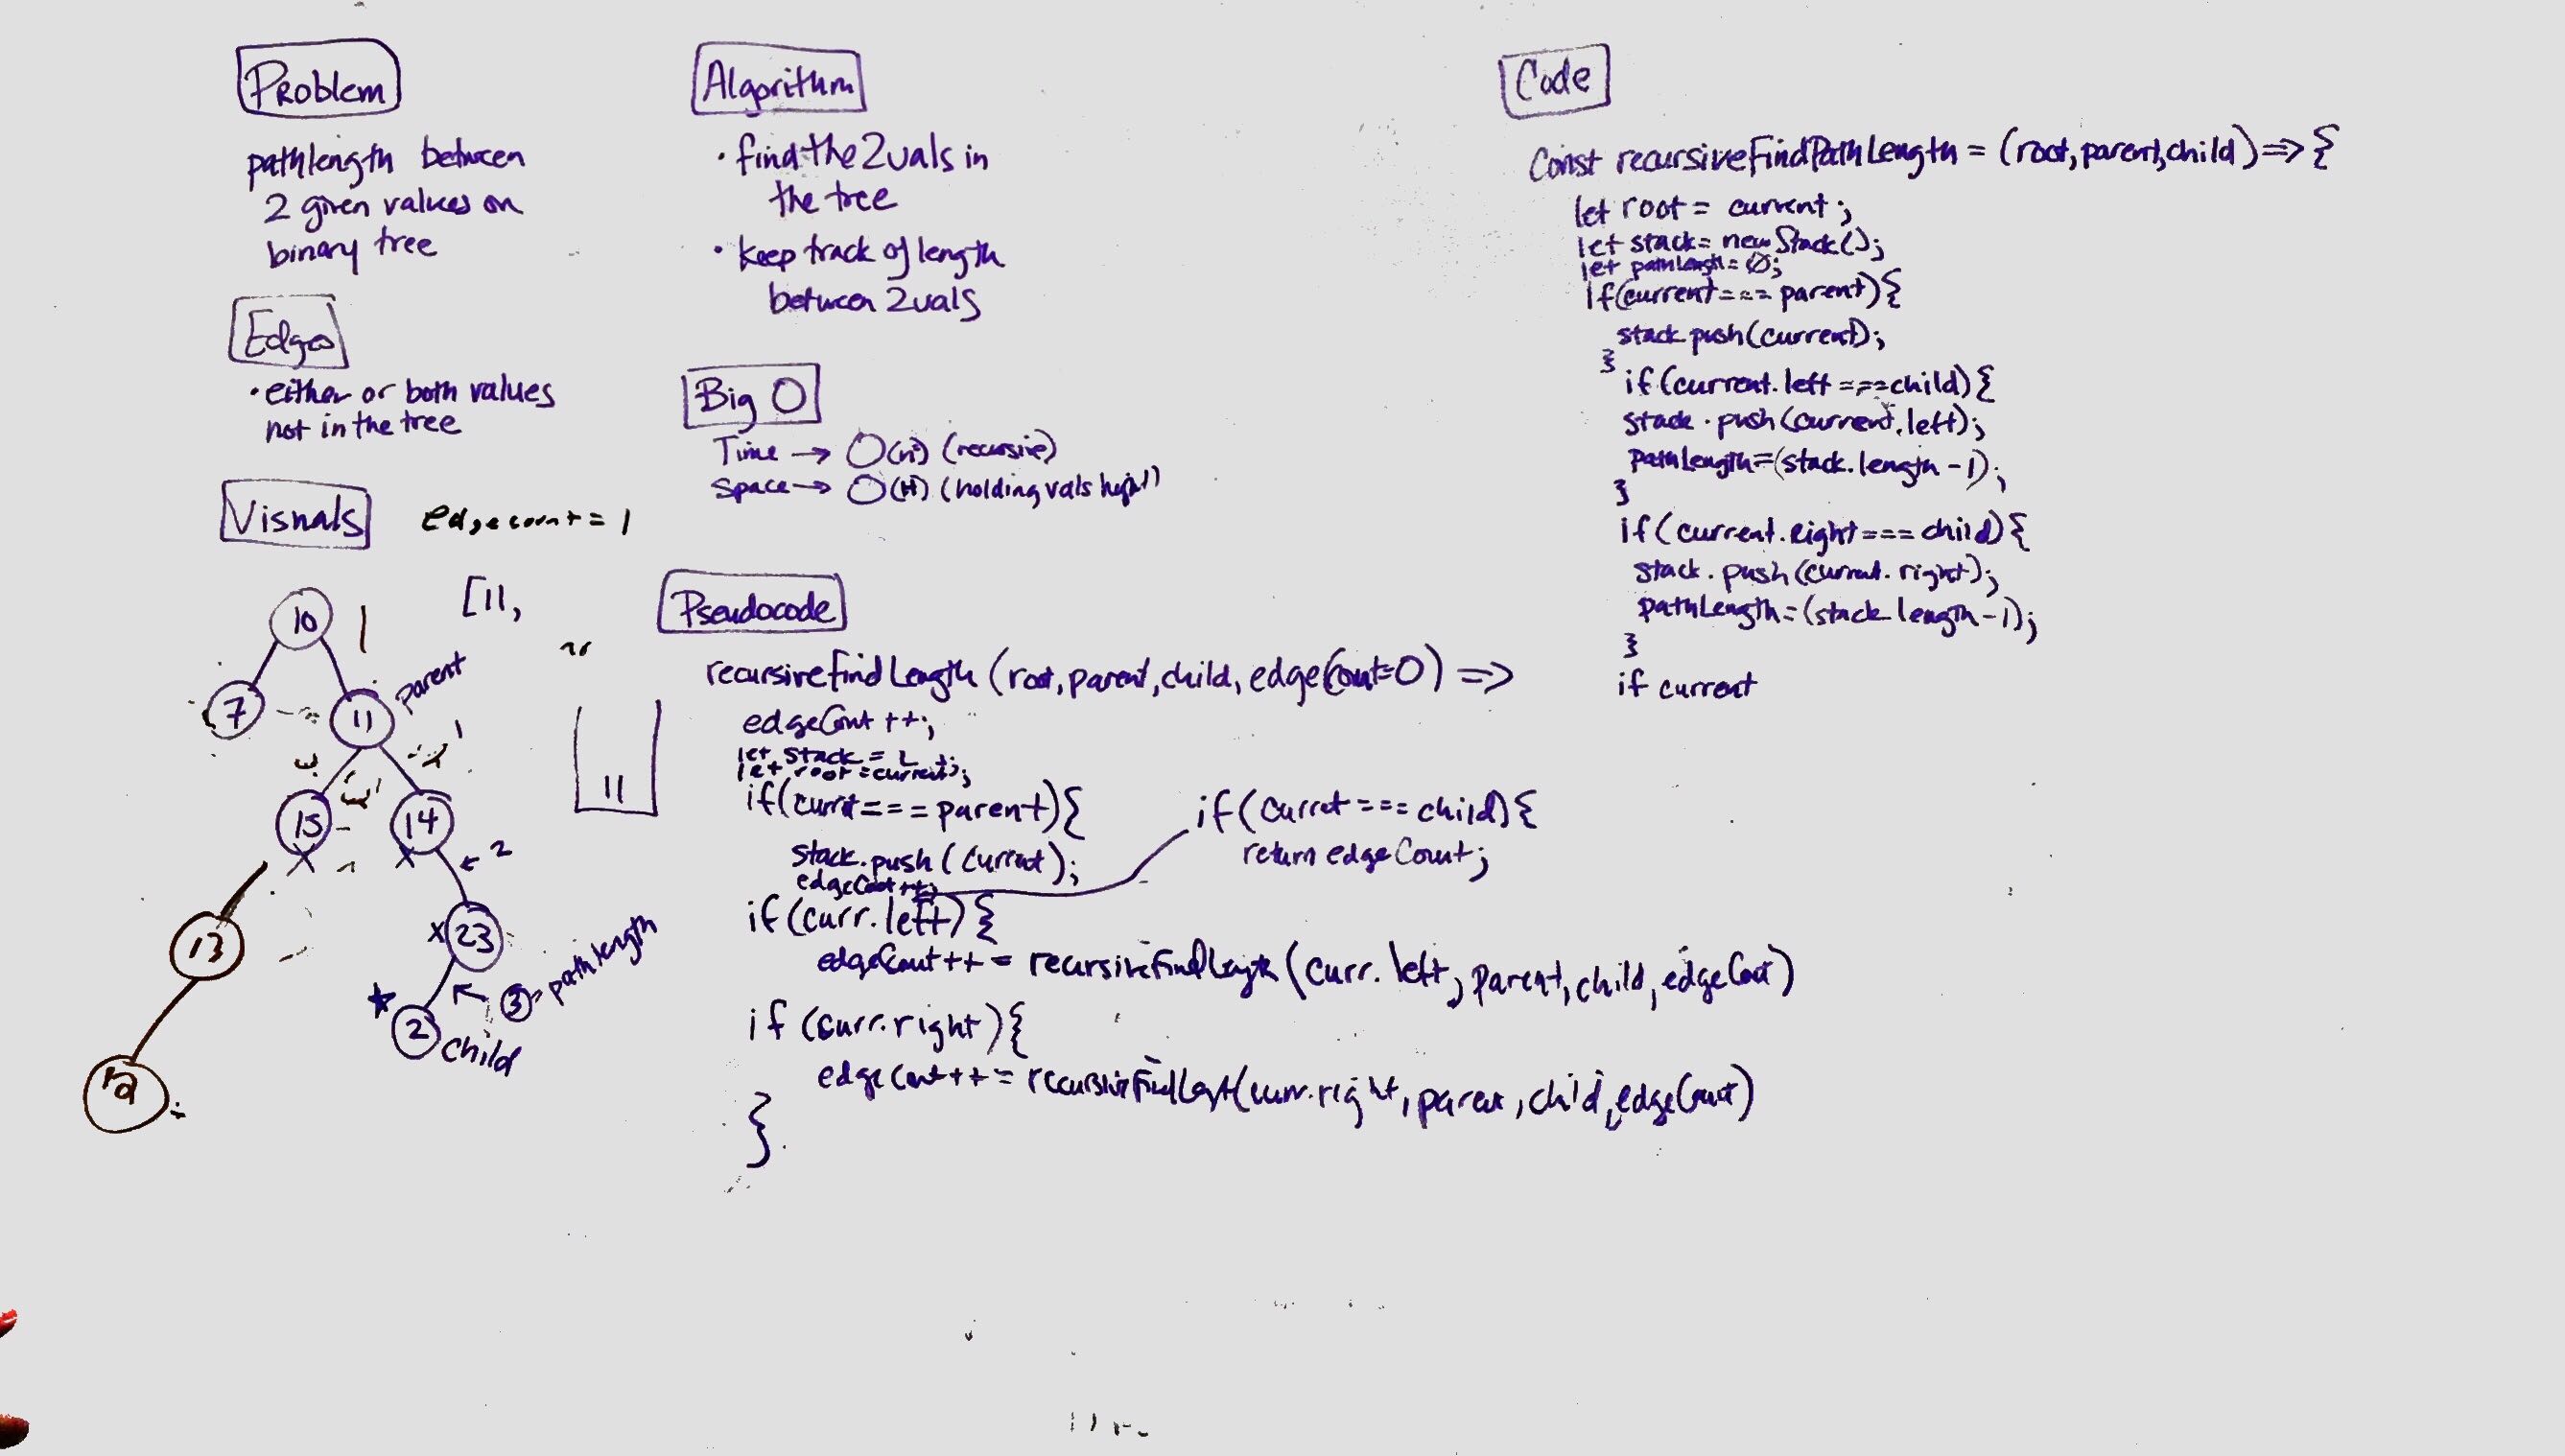 Problem
pathlength between
2 given values on
binary tree
Edges
• either or both values
not in the tree
Visuals
edgecount = 1
[11,
10
7
11
parent
1
15
14
2
13
23
3 = pathlength
2
child
12
11
Algorithm
• find the 2 vals in
the tree
• keep track of length
between 2 vals
Big O
Time → O(n²) (recursive)
Space → O(H) (holding vals height)
Pseudocode
recursiveFindLength (root, parent, child, edgeCount=0) =>
edgeCount ++;
let stack = [ ];
let root = current;
if(currnt === parent){
stack.push (current);
edgeCount ++;
if (curret === child) {
return edgeCount;
if (curr.left) {
edgeCount ++ = recursiveFindLength (curr. left, parent, child, edgeCount)
if (curr.right) {
edgeCount ++ = recursiveFindLength (curr.right, parent, child, edgeCount)
}
Code
Const recursiveFindPathLength = (root, parent, child) => {
let root = current;
let stack = new Stack();
let pathLength = 0;
if(current === parent){
stack push (current);
}
if (current.left === child) {
stack . push (current.left);
pathLength = (stack.length - 1);
}
if (current.right === child) {
stack. push (current. right);
pathLength = (stack length - 1);
}
if current